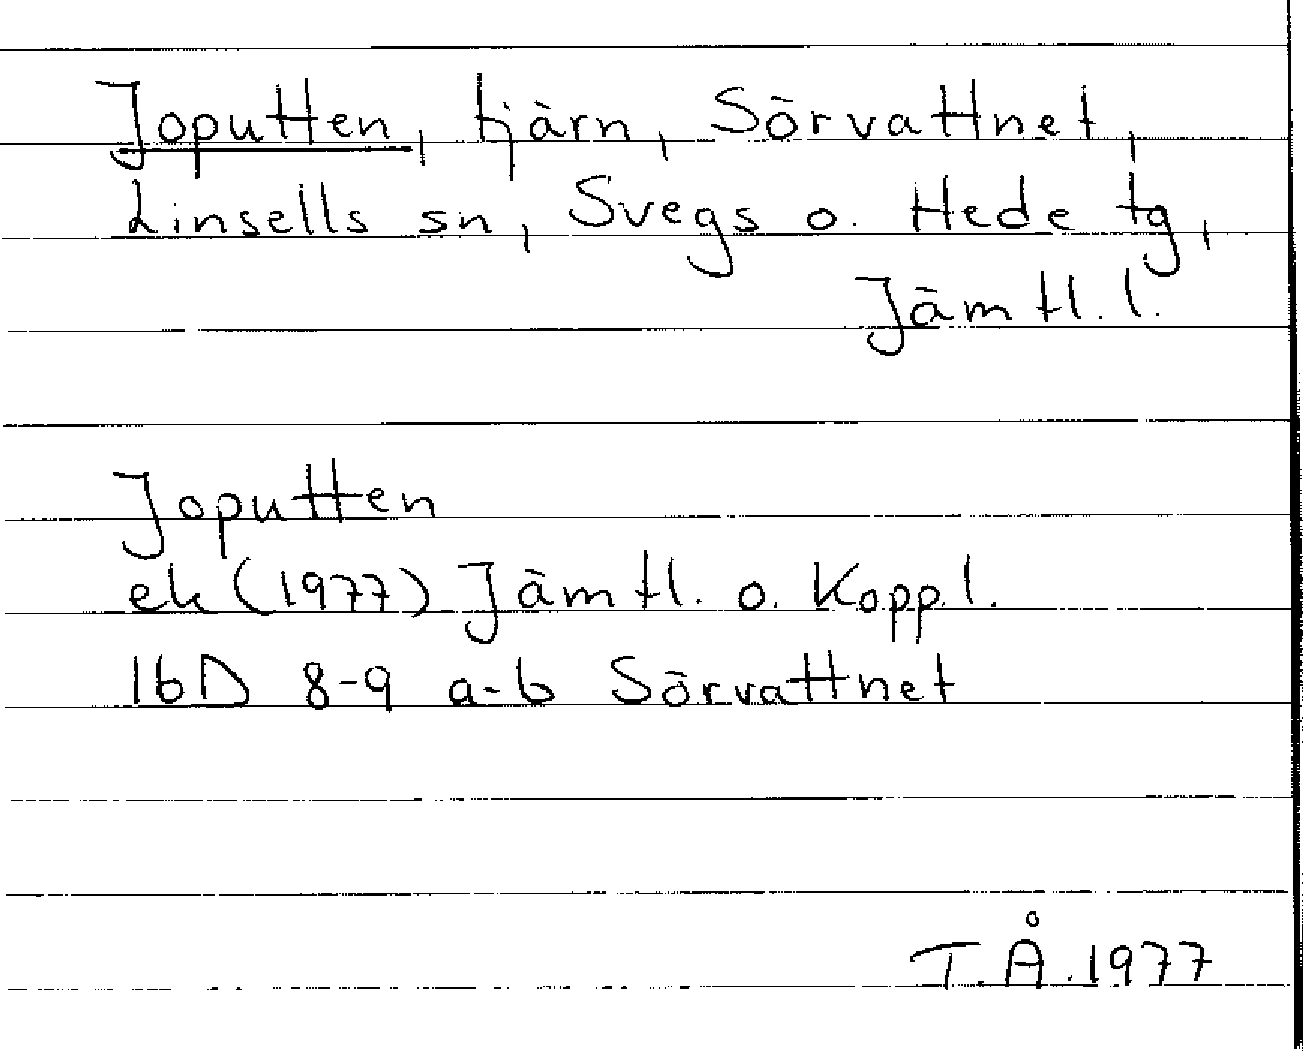 Joputten, tjärn, Sörvattnet,
Linsells sn, Svegs o. Hede tg,
Jämtl. l.
Joputten
ek (1977) Jämtl. o. Kopp. l.
16D 8-9 a-b Sörvattnet
T.Å. 1977